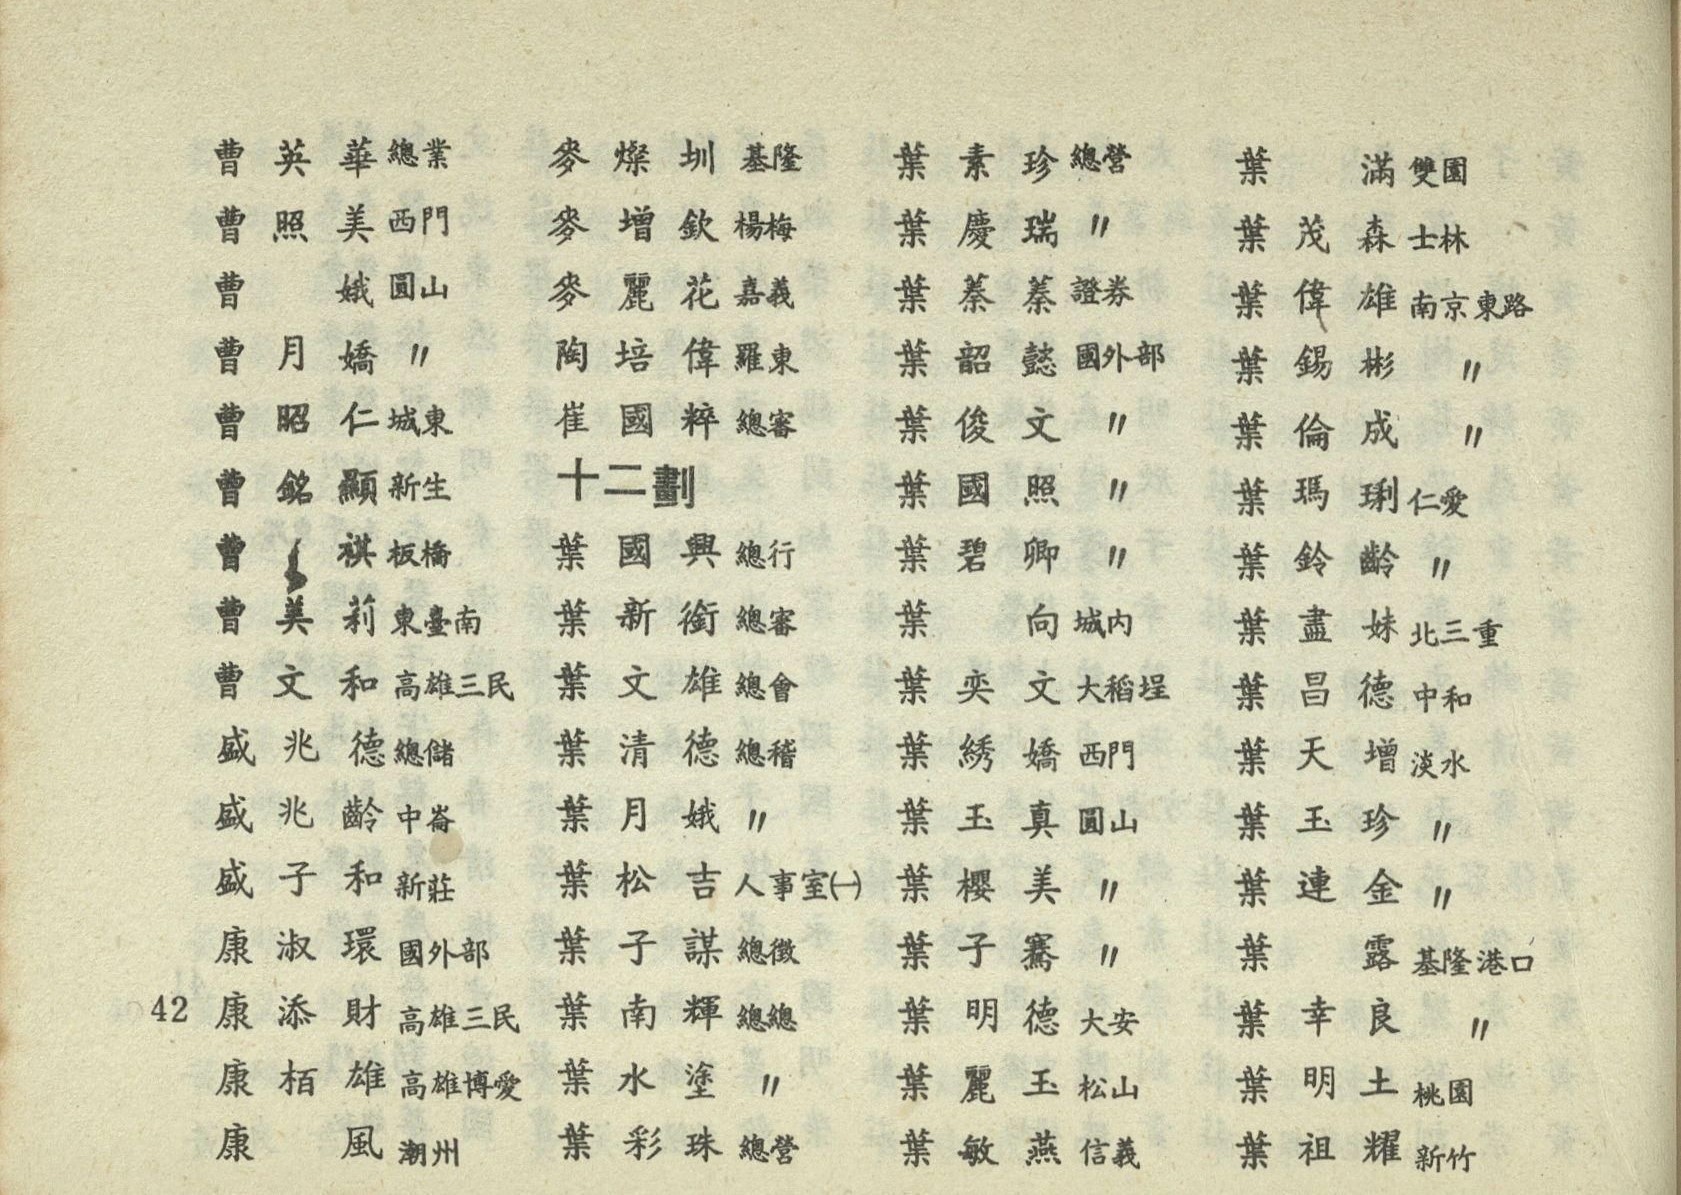 曹英華 總業
曹照美 西門
曹　娥 圓山
曹月嬌 〃
曹昭仁 城東
曹銘顯 新生
曹　祺 板橋
曹美莉 東臺南
曹文和 高雄三民
盛兆德 總儲
盛兆齡 中崙
盛子和 新莊
康淑環 國外部
42
康添財 高雄三民
康栢雄 高雄博愛
康　風 潮州
麥燦圳 基隆
麥增欽 楊梅
麥麗花 嘉義
陶培偉 羅東
崔國粹 總審
十二劃
葉國興 總行
葉新銜 總審
葉文雄 總會
葉清德 總稽
葉月娥 〃
葉松吉 人事室㈠
葉子謀 總徵
葉南輝 總總
葉水塗 〃
葉彩珠 總營
葉素珍 總營
葉慶瑞 〃
葉蓁蓁 證券
葉韶懿 國外部
葉俊文 〃
葉國照 〃
葉碧卿 〃
葉　向 城內
葉奕文 大稻埕
葉綉嬌 西門
葉玉真 圓山
葉櫻美 〃
葉子騫 〃
葉明德 大安
葉麗玉 松山
葉敏燕 信義
葉　滿 雙園
葉茂森 士林
葉偉雄 南京東路
葉錫彬 〃
葉倫成 〃
葉瑪琍 仁愛
葉鈴齡 〃
葉盡妹 北三重
葉昌德 中和
葉天增 淡水
葉玉珍 〃
葉連金 〃
葉　露 基隆港口
葉幸良 〃
葉明土 桃園
葉祖耀 新竹